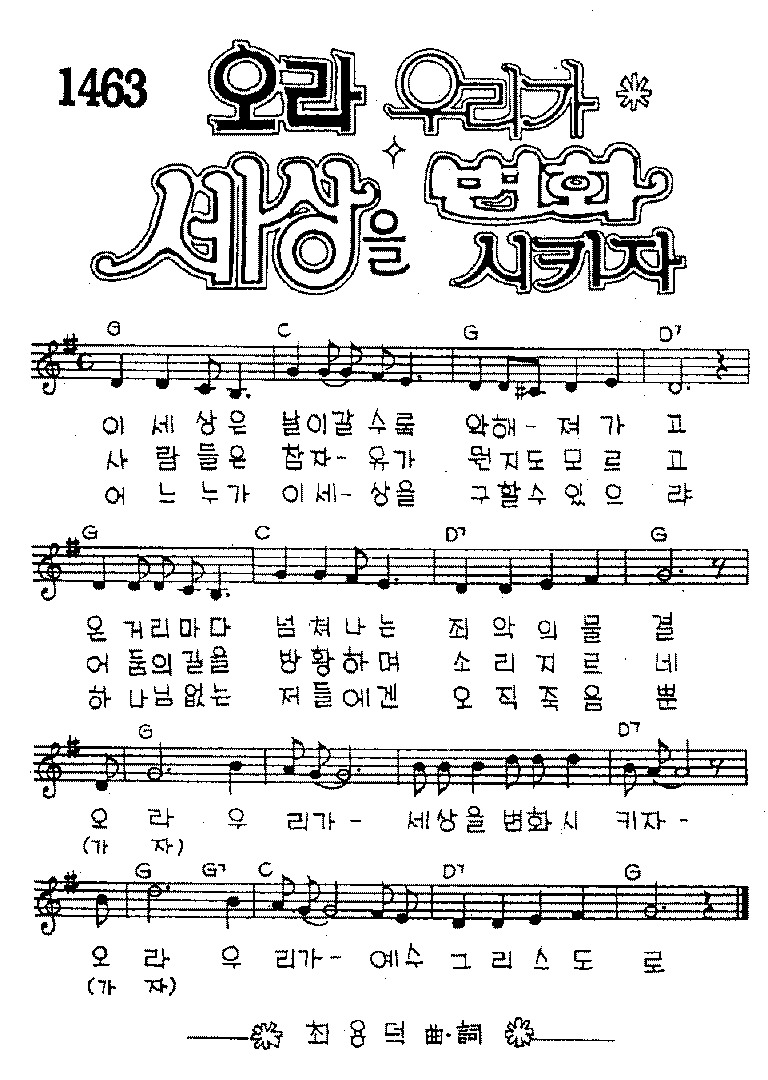 1463 오라 우리가
세상을 변화
시키자
G C G D7
이 세 상은 날이갈 수록 악해 - 져 가 고
사 람 들은 참자 - 유가 뭔지도 모르 고
어 느 누가 이세 - 상을 구할수 있으 랴
G C D7 G
온 거리마다 넘쳐나는 죄 악 의 물 결
어 둠의길을 방황하며 소 리 지 르 네
하 나님없는 저들에겐 오 직 죽 음 뿐
G D7
오 라 우 리가 - 세상을 변화시 키자 -
(가 자)
G G7 C D7 G
오 라 우 리가 - 예수 그 리 스 도 로
(가 자)
최 용 덕 曲·詞